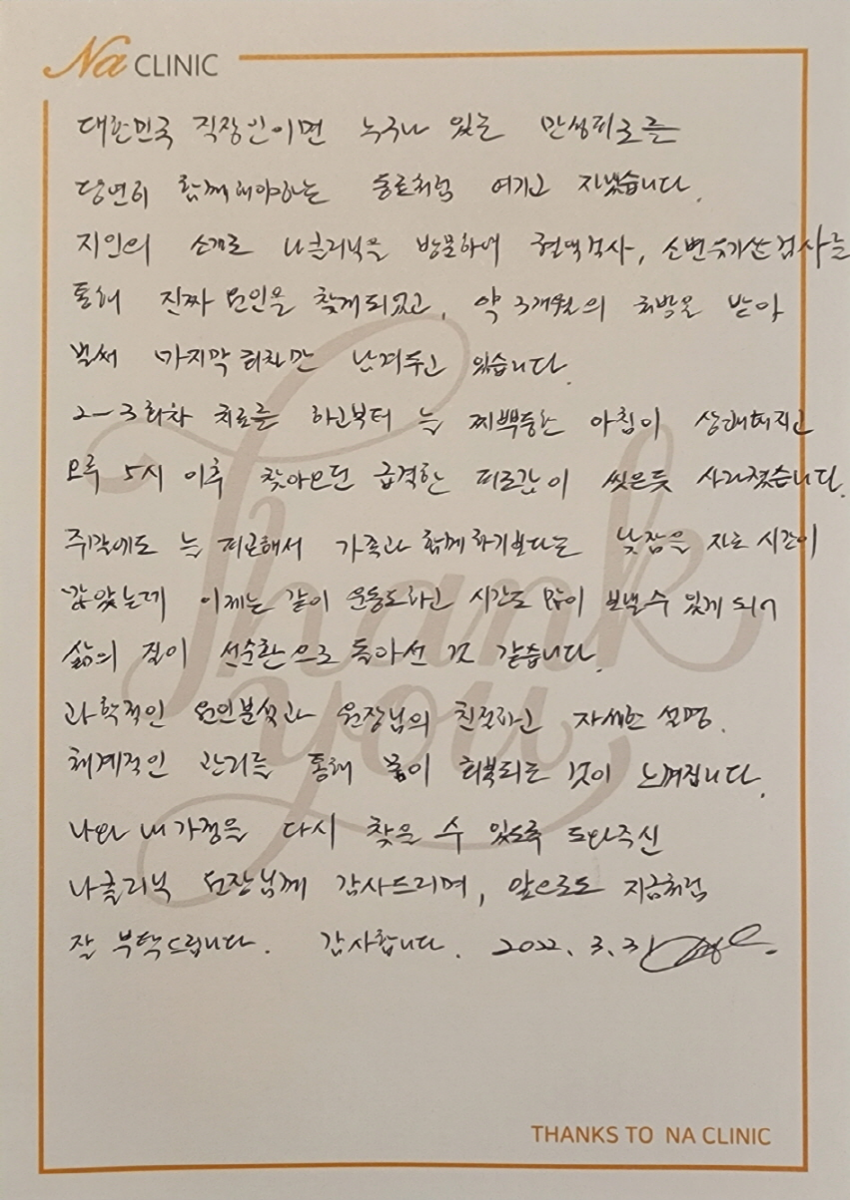 Na CLINIC
대한민국 직장인이면 누구나 있는 만성피로를
당연히 함께해야하는 동료처럼 여기고 지냈습니다.
지인의 소개로 나클리닉을 방문하여 혈액검사, 소변유기산검사를
통해 진짜 원인을 찾게되었고, 약 3개월의 처방을 받아
벌써 마지막 회차만 남겨두고 있습니다.
2-3회차 치료를 하고부터 늘 찌뿌둥한 아침이 상쾌해지고
오후 5시 이후 찾아오던 급격한 피로감이 씻은듯 사라졌습니다.
주말에도 늘 피곤해서 가족과 함께하기보다는 낮잠을 자는 시간이
많았는데 이제는 같이 운동도하고 시간도 많이 보낼수 있게 되어
삶의 질이 선순환으로 돌아선 것 같습니다.
과학적인 원인분석과 원장님의 친절하고 자세한 설명.
체계적인 관리를 통해 몸이 회복되는 것이 느껴집니다.
나와 내가정을 다시 찾을 수 있도록 도와주신
나클리닉 원장님께 감사드리며, 앞으로도 지금처럼
잘 부탁드립니다. 감사합니다. 2022. 3. 31
Thank
you
THANKS TO NA CLINIC